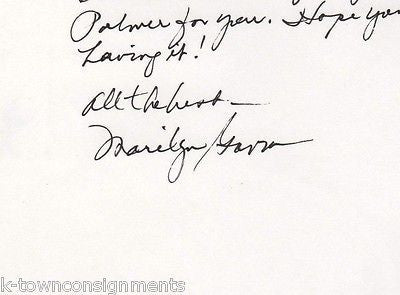 Palmer for you. Hope you
having it!
All the best—
Marilyn
k-townconsignments